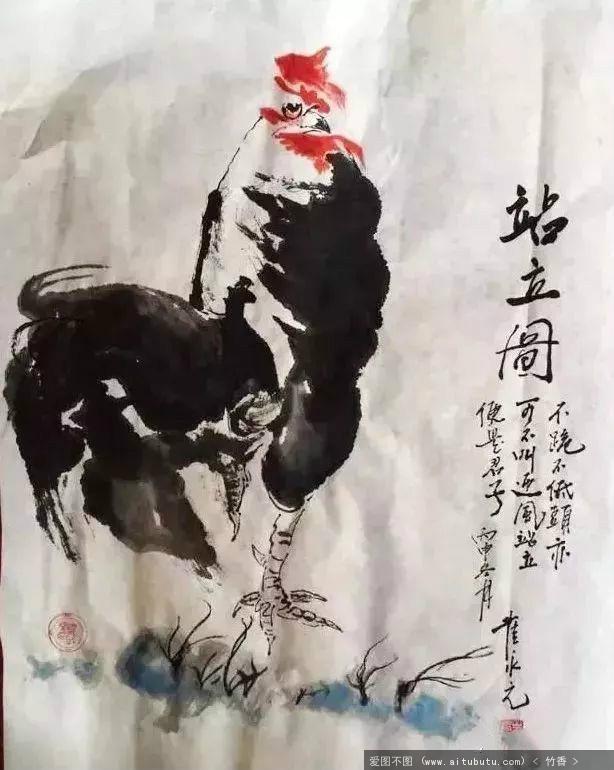 站立圖
不跪不低頭亦
可不叫迎風站立
便是君子 丙申冬月
崔永元
爱图不图 (www.aitubutu.com) < 竹香 >